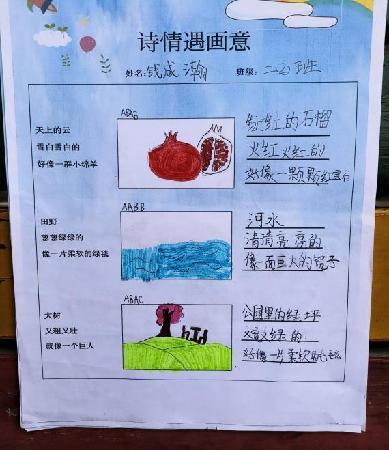 诗情遇画意
姓名:钱成瀚 班级:二(2)班
ABAB
天上的云
雪白雪白的
好像一群小绵羊
红红的石榴
火红火红的
好像一颗颗红宝石
AABB
田野
葱葱绿绿的
像一片柔软的绿毯
河水
清清亮亮的
像一面巨大的镜子
ABAC
大树
又粗又壮
就像一个巨人
公园里的绿坪
又嫩又绿的
好像一片柔软的